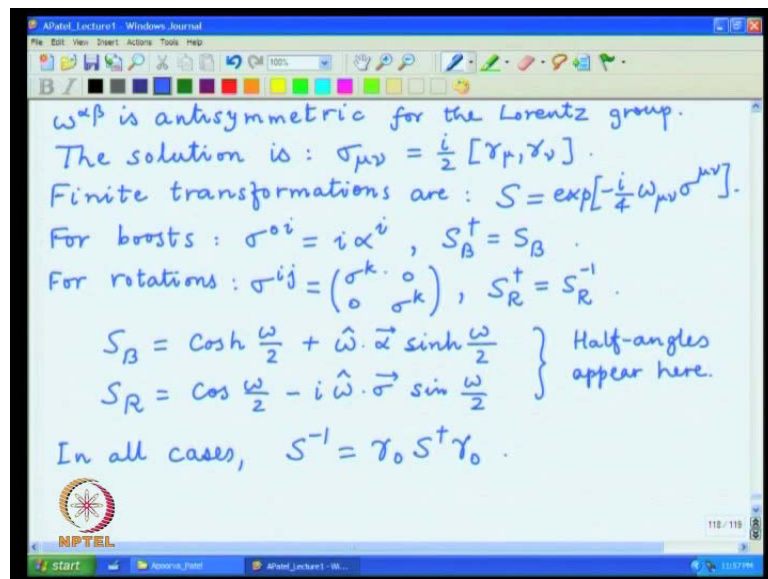 APatel_Lecture1 - Windows Journal
File Edit View Insert Actions Tools Help
100%
B I
ω^{αβ} is antisymmetric for the Lorentz group.
The solution is : σ_{μν} = i/2 [γ_μ, γ_ν] .
Finite transformations are : S = exp[-i/4 ω_{μν} σ^{μν}].
For boosts : σ^{0i} = i α^i , S_B^† = S_B .
For rotations : σ^{ij} = (σ^k 0; 0 σ^k) , S_R^† = S_R^{-1} .
S_B = Cosh ω/2 + ω̂ . α⃗ sinh ω/2 } Half-angles
S_R = Cos ω/2 - i ω̂ . σ⃗ sin ω/2 } appear here.
In all cases, S^{-1} = γ_0 S^† γ_0 .
118 / 119
NPTEL
start Apoorva_Patel APatel_Lecture1 - Wi...